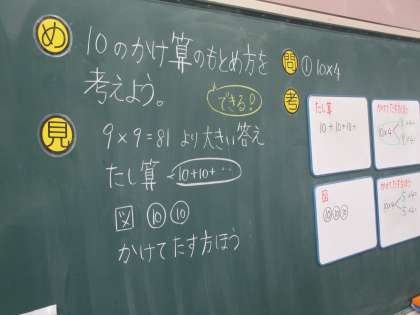 め
10のかけ算のもとめ方を
考えよう。
できる?
見
9×9=81 より大きい答え
たし算 10+10+‥
図 10 10
かけてたす方ほう
問 ① 10×4
考
たし算
10+10+10+
図
10 10 10
かけてたす方ほう
10×4
かけてたす方ほう
10×4